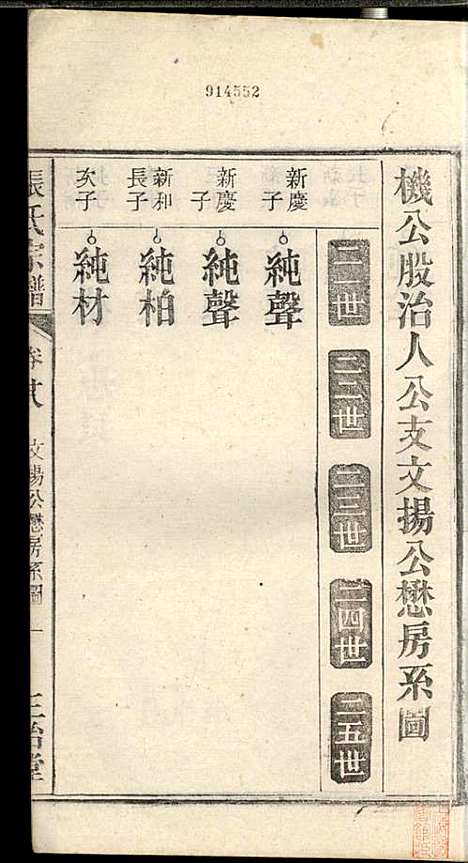 914552
機公股治人公支文揚公懋房系圖
二一世
二二世
二三世
二四世
二五世
新慶子
純聲
新慶子
純聲
新和長子
純柏
次子
純材
張氏宗譜
文揚公懋房系圖
一